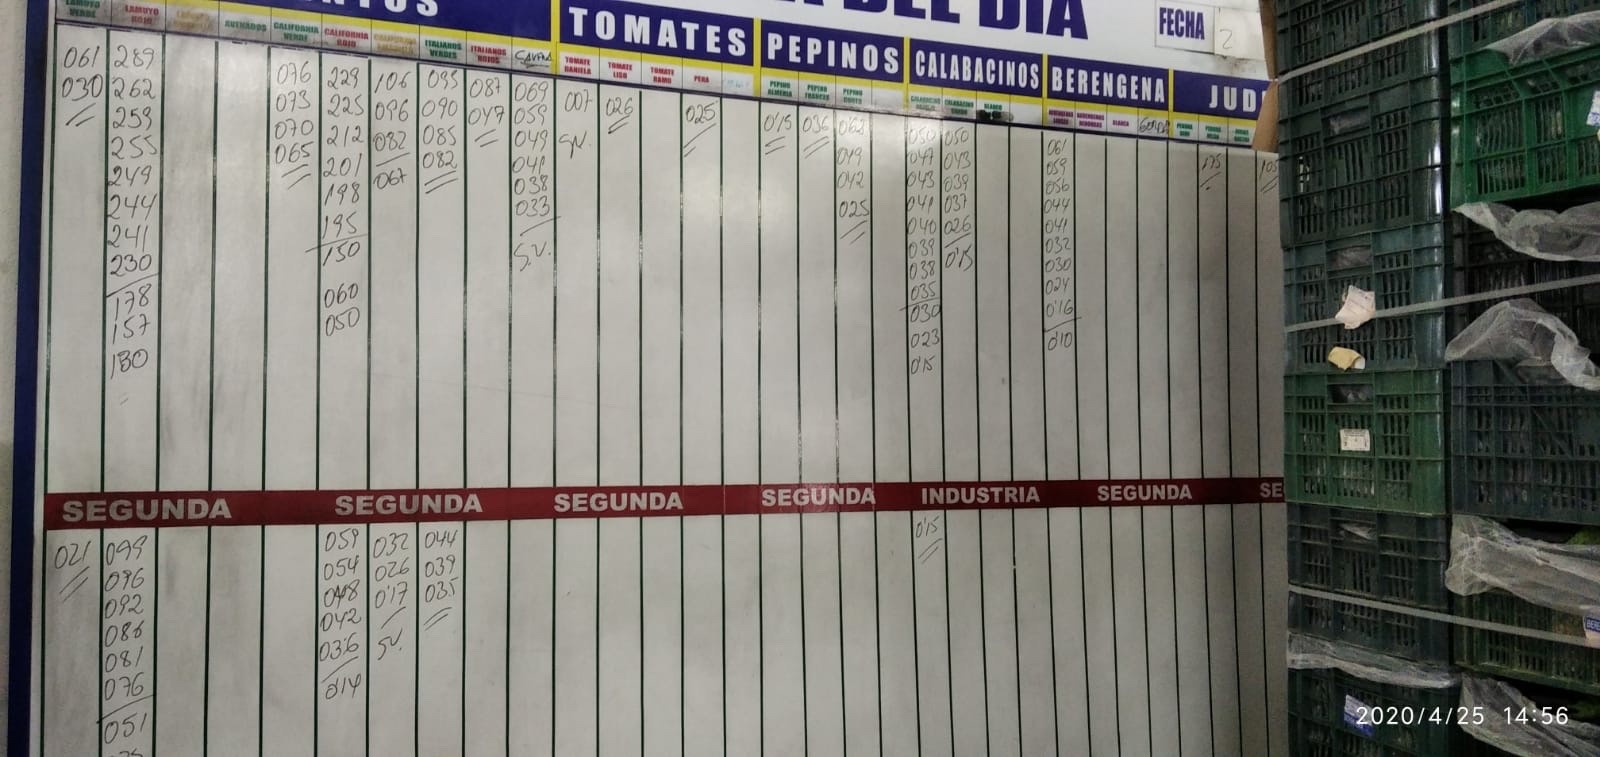 DEL DIA
FECHA 2
TOMATES PEPINOS CALABACINOS BERENGENA
LAMUYO VERDE LAMUYO ROJO ASURADOS CALIFORNIA VERDE CALIFORNIA ROJO ITALIANOS VERDES ITALIANOS ROJOS TOMATE DANIELA TOMATE LISO TOMATE RAMO PERA PEPINO ALMERIA PEPINO FRANCES PEPINO CORTO BLANCO
061
030
289
262
259
255
249
244
241
230
178
157
130
076
073
070
065
229
225
212
201
198
195
150
060
050
106
096
082
067
095
090
085
082
087
047
069
059
049
041
038
033
S.V.
007
S.V.
026
025
0'15
036
062
049
042
025
050
047
043
041
040
039
038
035
030
023
0'15
050
043
039
037
026
0'15
061
059
056
044
041
032
030
024
0'16
0'10
175
105
SEGUNDA SEGUNDA SEGUNDA SEGUNDA INDUSTRIA SEGUNDA SE
021
099
096
092
086
081
076
051
059
054
048
042
036
0'14
032
026
0'17
S.V.
044
039
035
0'15
2020/4/25 14:56